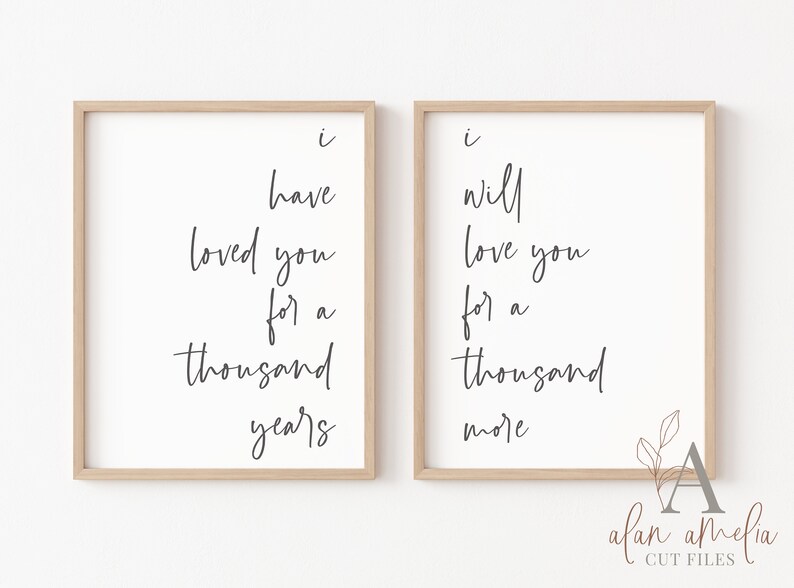 i
have
loved you
for a
thousand
years
i
will
love you
for a
thousand
more
A
alan amelia
CUT FILES